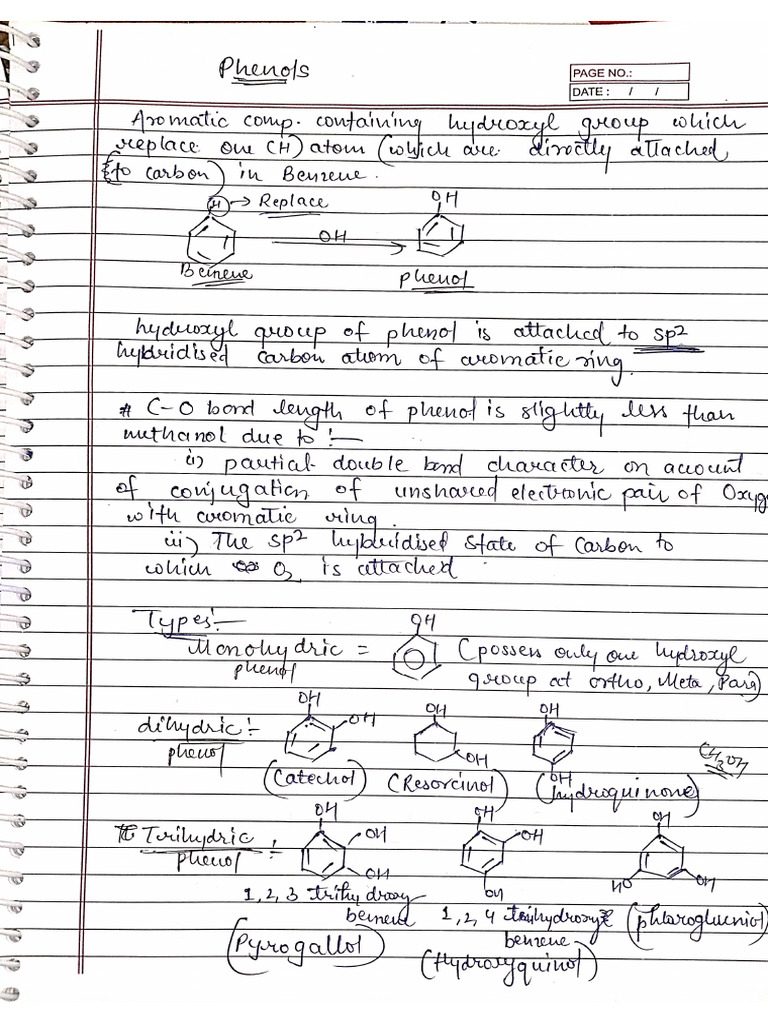 Phenols
PAGE NO.:
DATE: / /
Aromatic comp. containing hydroxyl group which
replace one (H) atom (which are directly attached
to carbon) in Benzene.
H → Replace
OH
OH
Benzene
phenol
hydroxyl group of phenol is attached to sp2
hybridised carbon atom of aromatic ring.
# C-O bond length of phenol is slightly less than
methanol due to :-
i) partial double bond character on account
of conjugation of unshared electronic pair of Oxyge
with aromatic ring.
ii) The sp2 hybridised state of Carbon to
which O2 is attached
Types:-
OH
Monohydric = (possess only one hydroxyl
phenol
group at ortho, Meta, Para)
dihydric :-
phenol
OH
OH
OH
OH
OH
OH
CH3OH
(Catechol) (Resorcinol) (hydroquinone)
Trihydric :
phenol
OH
OH
OH
OH
OH
OH
OH
HO
OH
1,2,3 trihydroxy
benzene
1,2,4 trihydroxy
benzene
(phloroglucniol)
(Pyrogallol)
(Hydroxyquinol)